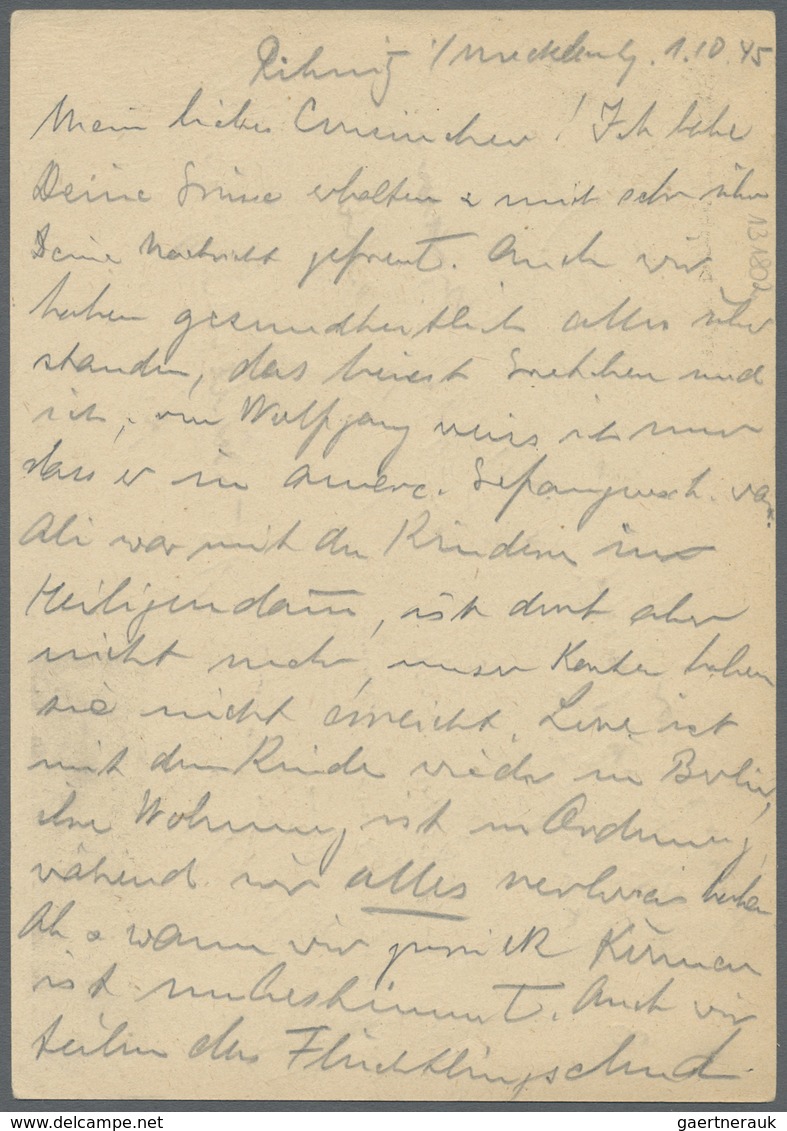 Ribnitz i/Mecklenbg. 1.10.45
Mein liebes Cousinchen! Ich habe
Deine Grüsse erhalten & mich sehr über
Deine Nachricht gefreut. Auch wir
haben gesundheitlich alles über
standen, das heisst Gretchen und
ich, von Wolfgang weiss ich nur
dass er in americ. Gefangensch. war.
Ali war mit den Kindern in
Heiligendamm, ist dort aber
nicht mehr, unser Karten haben
sie nicht erreicht. Lene ist
mit dem Kinde wieder in Berlin,
ihre Wohnung ist in Ordnung,
während wir alles verloren haben
Ob & wann wir zurück können
ist unbestimmt. Auch wir
teilen das Flüchtlingselend
131802
gaertnerauk